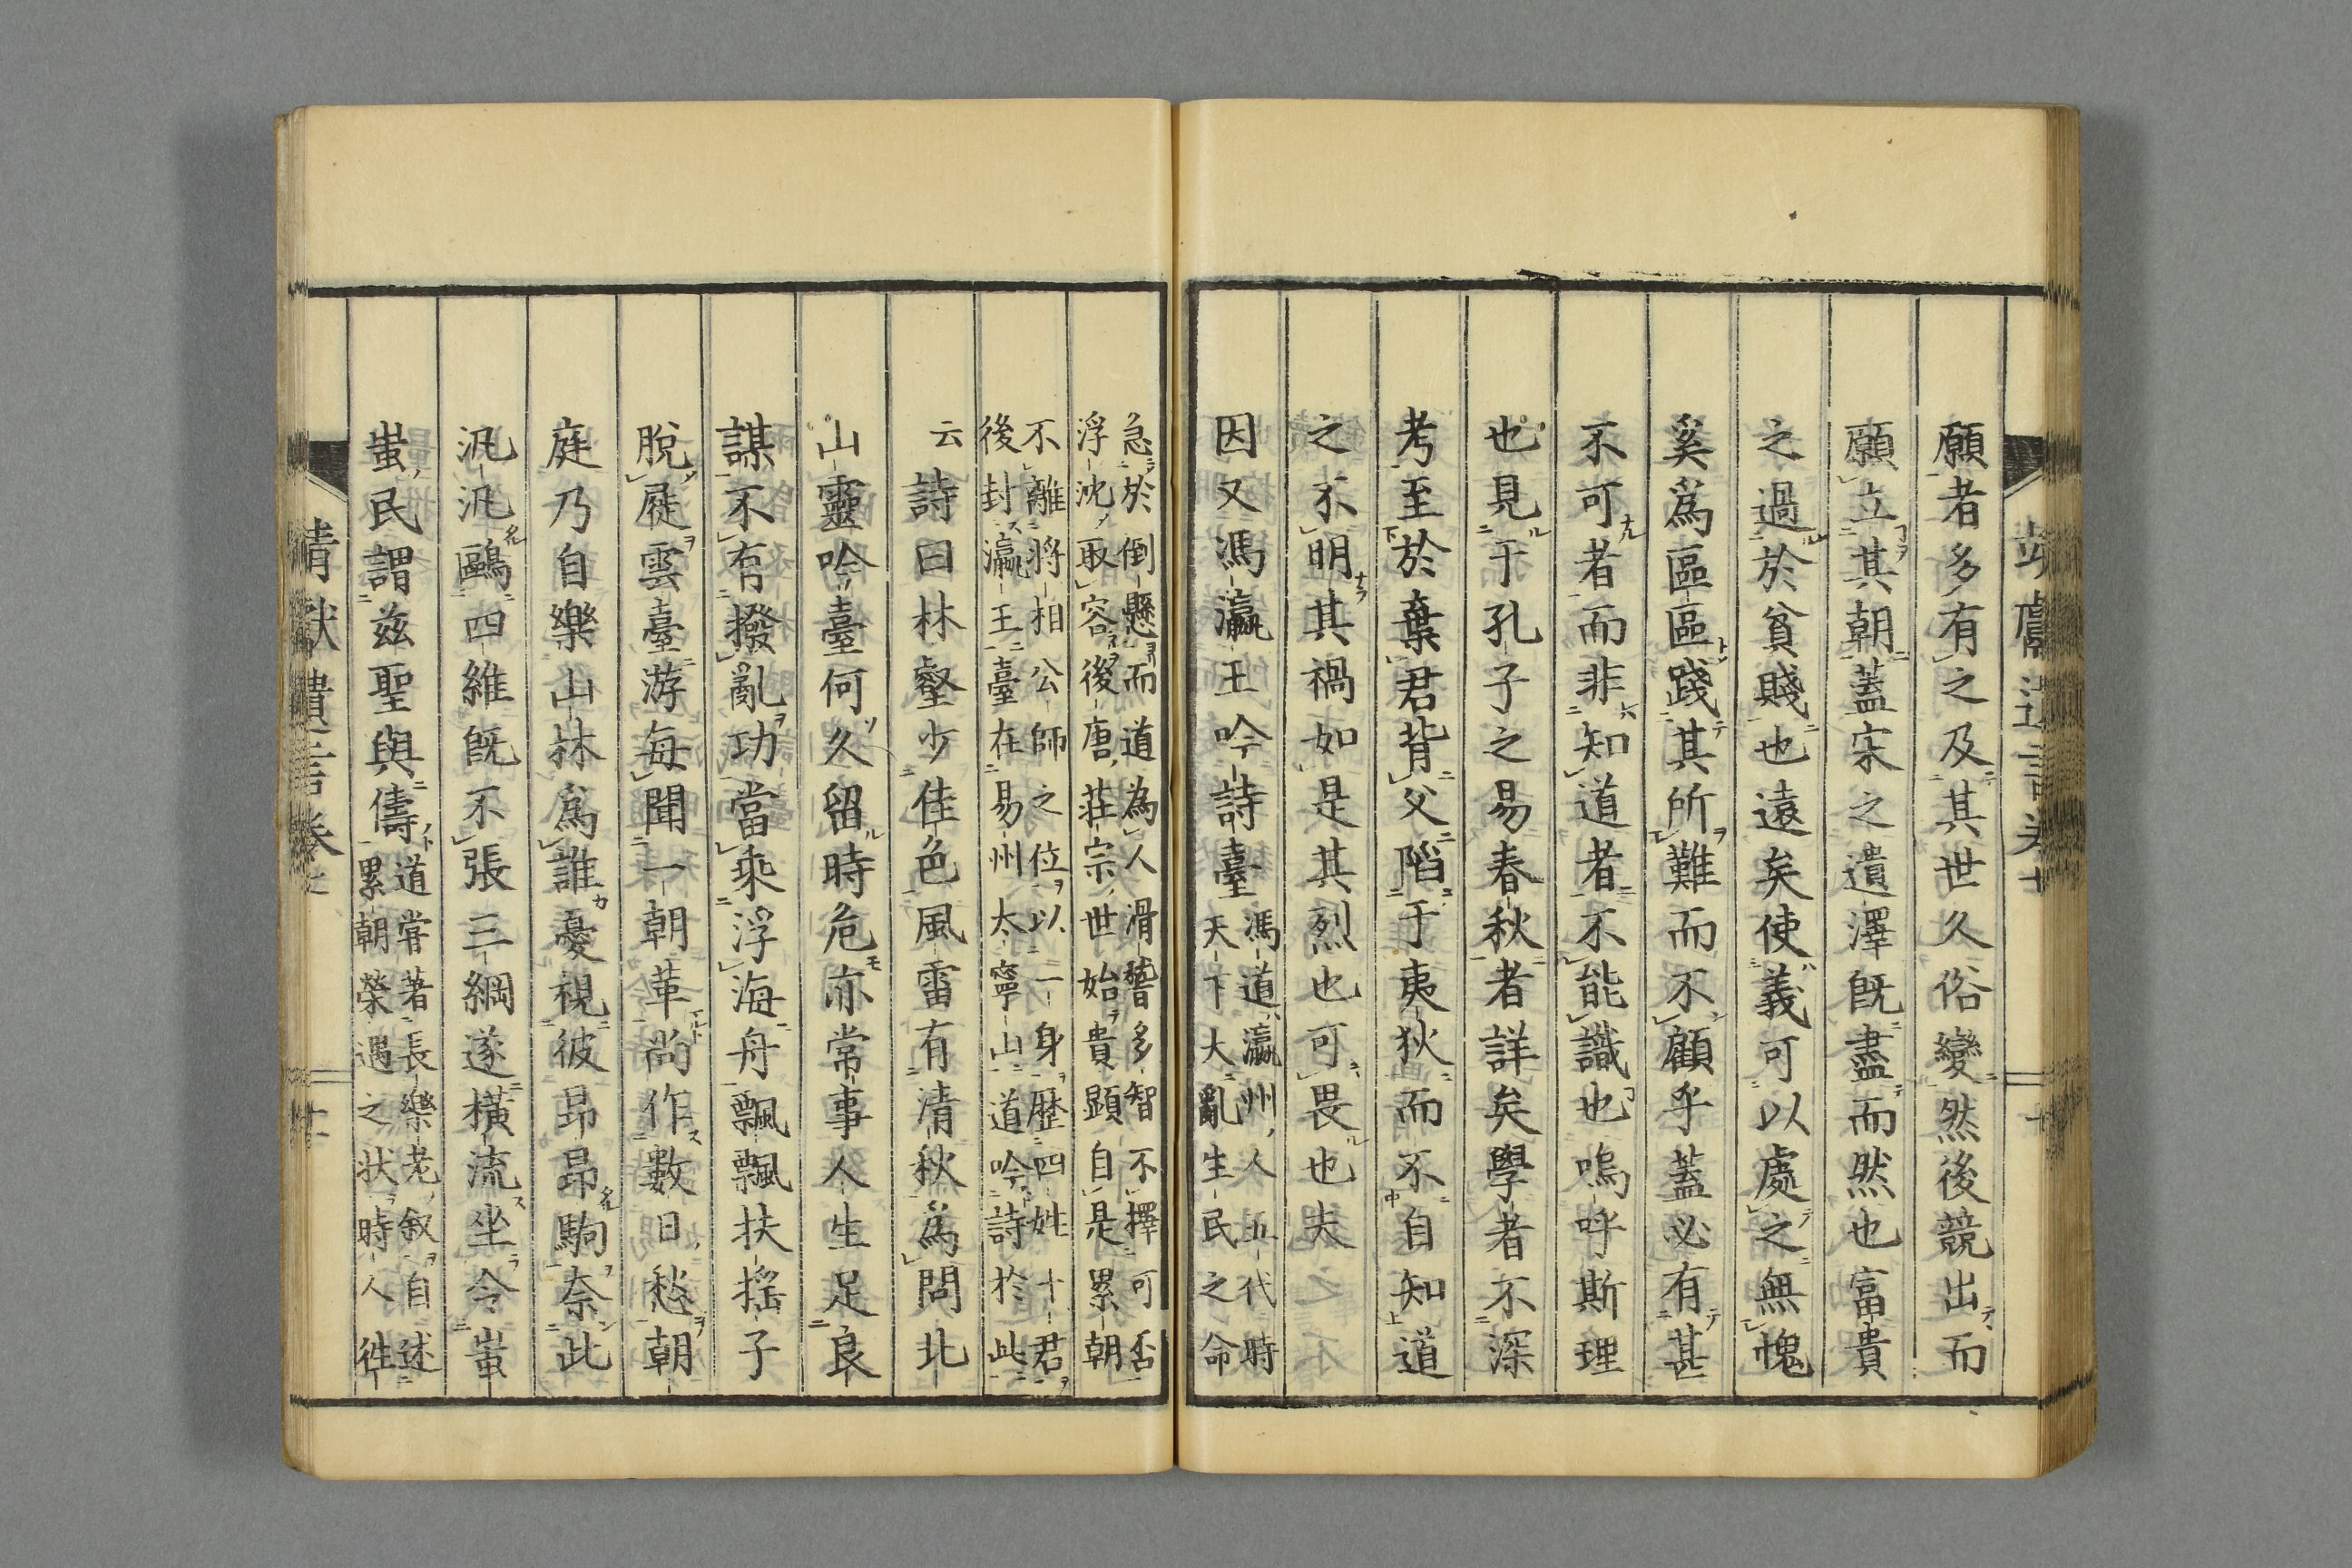 願者多有之及其世久俗變然後競出而
願立其朝蓋宋之遺澤既盡而然也富貴
之過於貧賤也遠矣使義可以處之無愧
奚爲區區踐其所難而不顧乎蓋必有甚
不可者而非知道者不能識也嗚呼斯理
也見于孔子之易春秋者詳矣學者不深
考至於棄君背父陷于夷狄而不自知道
之不明其禍如是其烈也可畏也夫
因又馮瀛王吟詩臺
馮道瀛州人五代時
天下大亂生民之命
急於倒懸而道為人滑稽多智不擇可否
浮沈取容後唐莊宗世始貴顯自是累朝
不離將相公師之位以一身歷四姓十君
後封瀛王臺在易州太寧山道吟詩於此
云
詩曰林壑少佳色風雷有清秋爲問北
山靈吟臺何久留時危亦常事人生足良
謀不有撥亂功當乘浮海舟飄飄扶搖子
脫屣雲臺游每聞一朝革尚作數日愁朝
庭乃自樂山林爲誰憂視彼昂昂駒奈此
汎汎鷗四維既不張三綱遂橫流坐令蚩
蚩民謂茲聖與儔
道嘗著長樂老叙自述
累朝榮遇之状時人徃
靖獻遺言卷七